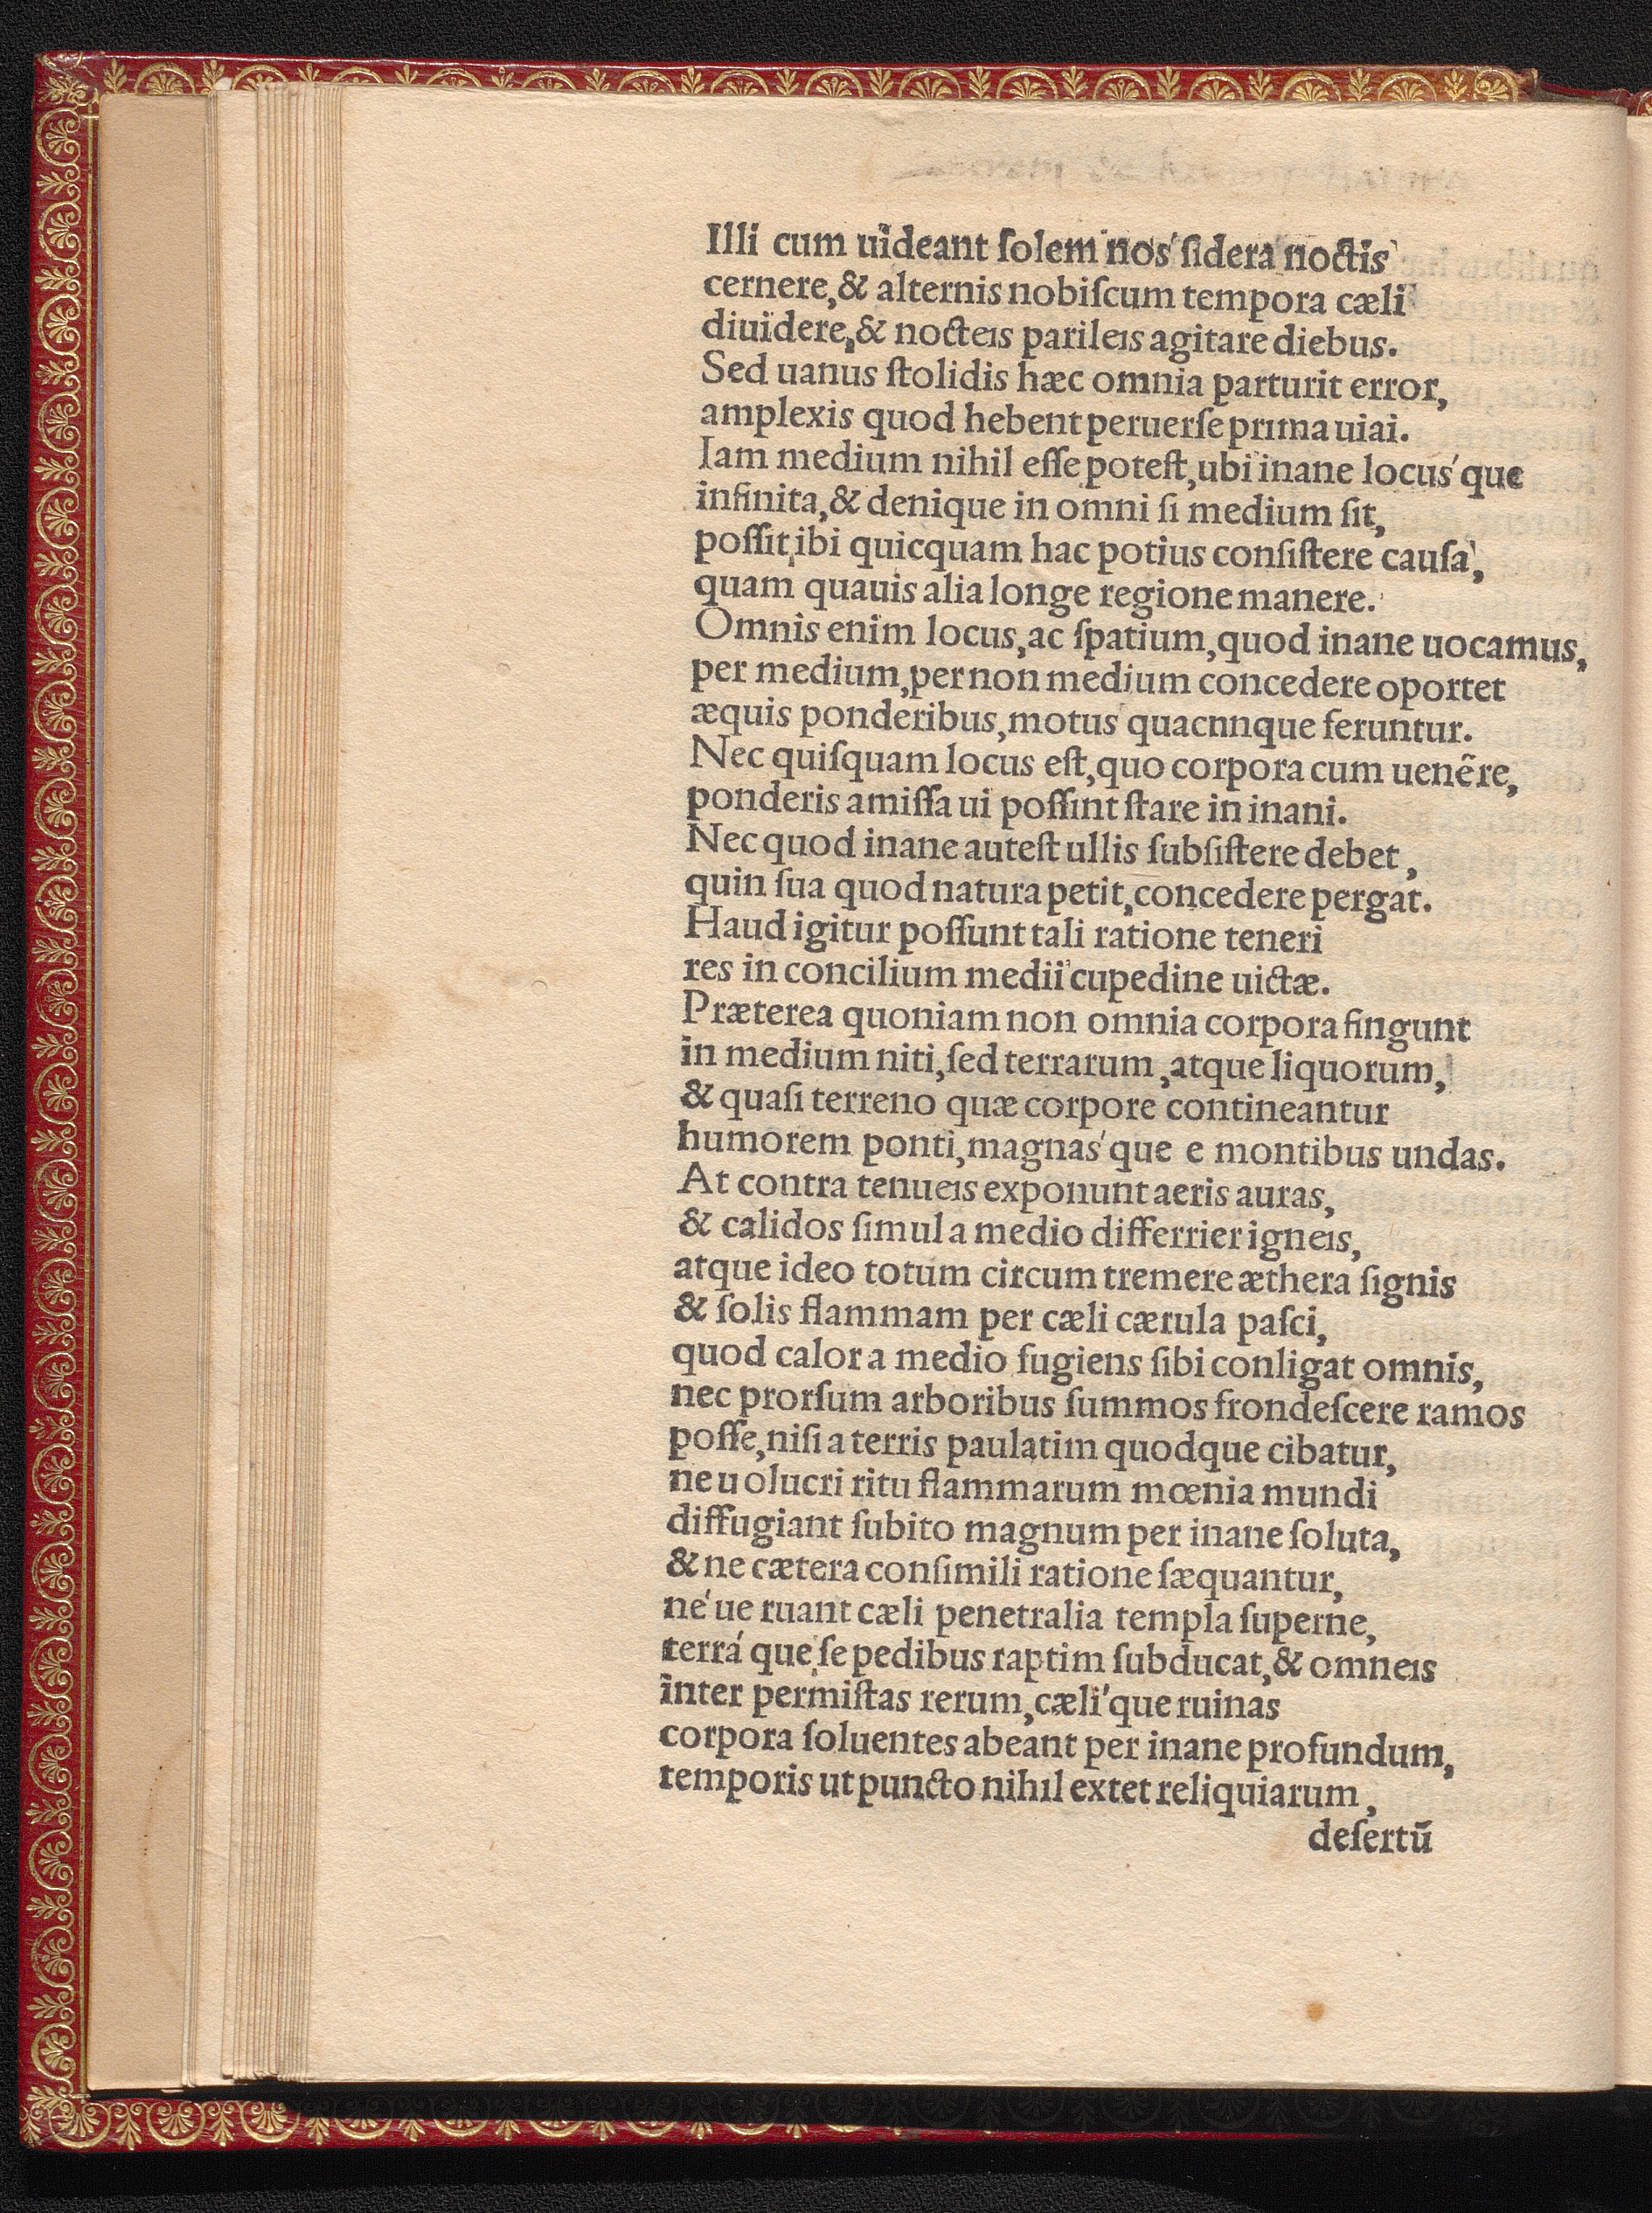 Illi cum uideant ſolem nos ſidera noctis
cernere,& alternis nobiſcum tempora cæli
diuidere,& nocteis parileis agitare diebus.
Sed uanus ſtolidis hæc omnia parturit error,
amplexis quod hebent peruerſe prima uiai.
Iam medium nihil eſſe poteſt,ubi inane locus'que
infinita,& denique in omni ſi medium ſit,
poſſit ibi quicquam hac potius conſiſtere cauſa,
quam quauis alia longe regione manere.
Omnis enim locus,ac ſpatium,quod inane uocamus,
per medium,per non medium concedere oportet
æquis ponderibus,motus quacnnque feruntur.
Nec quiſquam locus eſt,quo corpora cum uenēre,
ponderis amiſſa ui poſſint ſtare in inani.
Nec quod inane auteſt ullis ſubſiſtere debet,
quin ſua quod natura petit,concedere pergat.
Haud igitur poſſunt tali ratione teneri
res in concilium medii cupedine uictæ.
Præterea quoniam non omnia corpora fingunt
in medium niti,ſed terrarum,atque liquorum,
& quaſi terreno quæ corpore contineantur
humorem ponti,magnas'que e montibus undas.
At contra tenueis exponunt aeris auras,
& calidos ſimul a medio differrier igneis,
atque ideo totum circum tremere æthera ſignis
& ſolis flammam per cæli cærula paſci,
quod calor a medio fugiens ſibi conligat omnis,
nec prorſum arboribus ſummos frondeſcere ramos
poſſe,niſi a terris paulatim quodque cibatur,
ne uolucri ritu flammarum mœnia mundi
diffugiant ſubito magnum per inane ſoluta,
& ne cætera conſimili ratione ſæquantur,
né ue ruant cæli penetralia templa ſuperne,
terrá que ſe pedibus raptim ſubducat,& omneis
inter permiſtas rerum,cæli'que ruinas
corpora ſoluentes abeant per inane profundum,
temporis ut puncto nihil extet reliquiarum,
deſertū